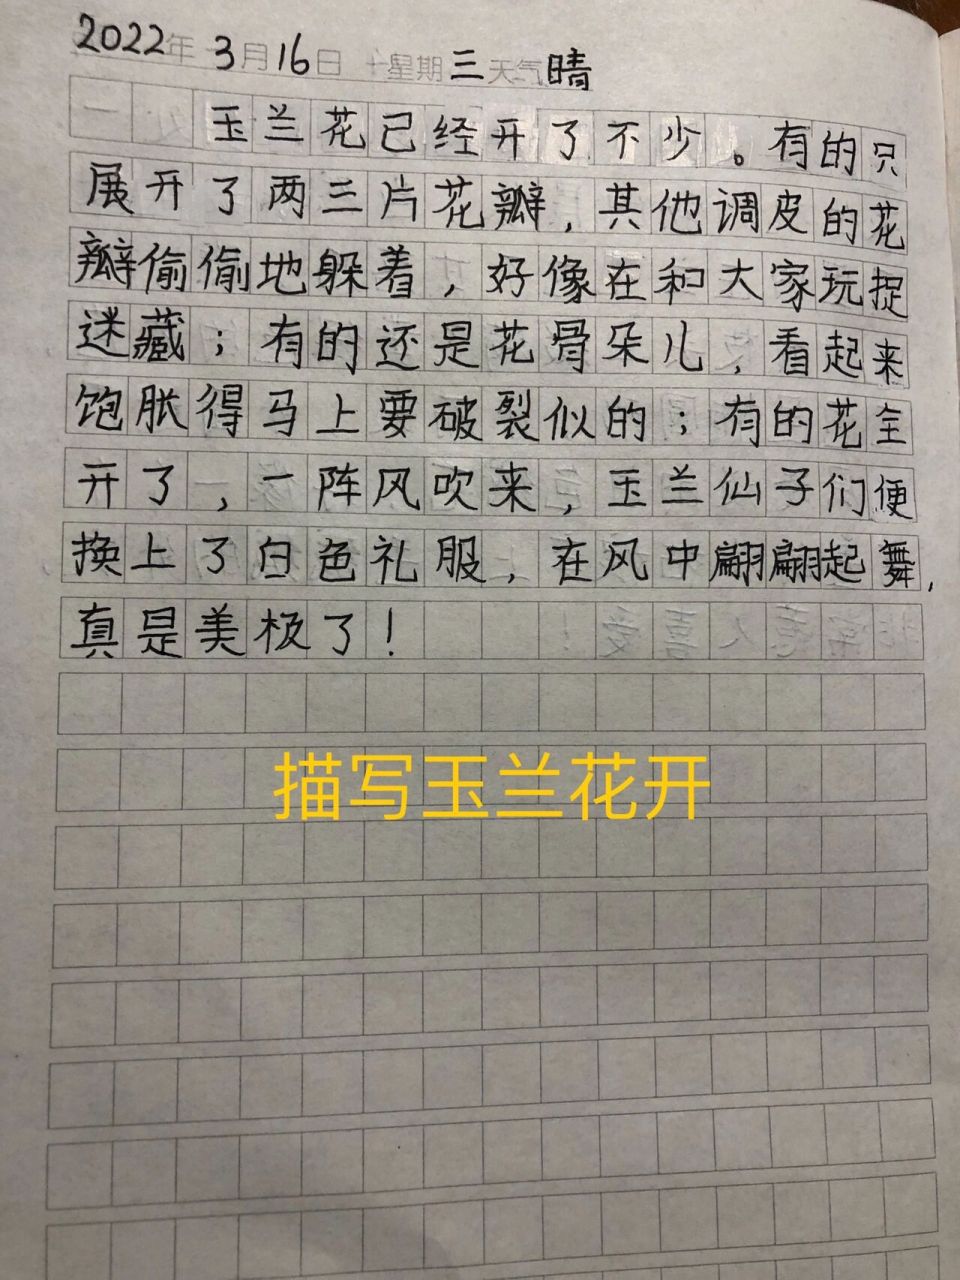 2022年3月16日 星期三天气晴
玉兰花已经开了不少。有的只
展开了两三片花瓣，其他调皮的花
瓣偷偷地躲着，好像在和大家玩捉
迷藏；有的还是花骨朵儿，看起来
饱胀得马上要破裂似的；有的花全
开了，一阵风吹来，玉兰仙子们便
换上了白色礼服，在风中翩翩起舞，
真是美极了！
描写玉兰花开